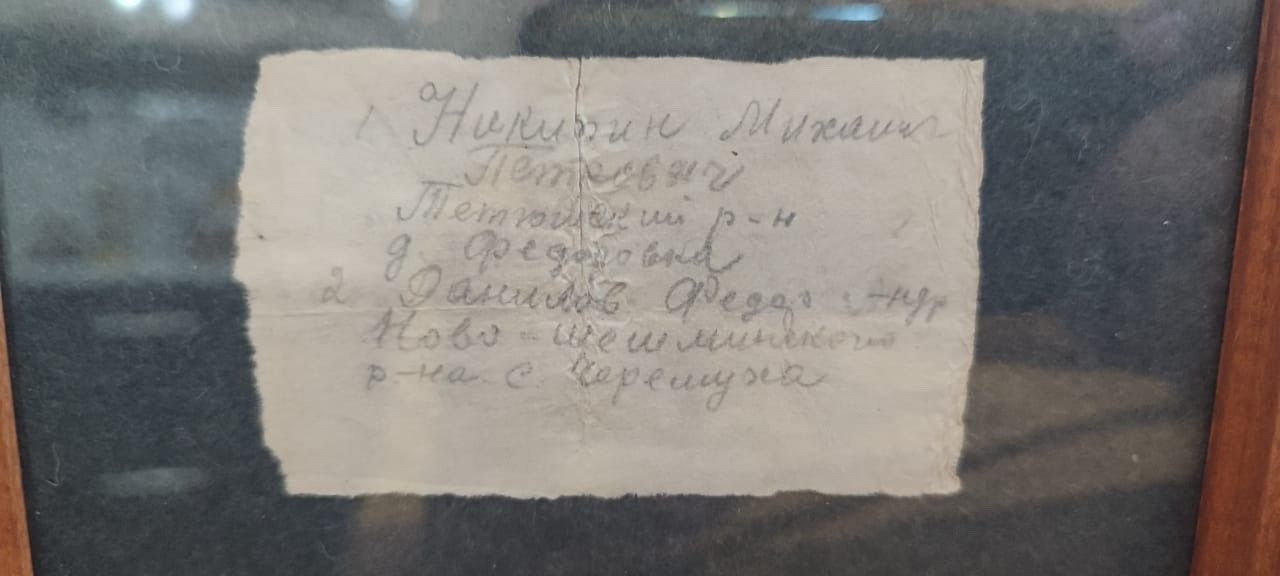 1 Никитин Михаил
Петрович
Тетюшский р-н
д. Федоровка
2 Данилов Федор Андр
Ново-Шешминского
р-на с. Черемуха